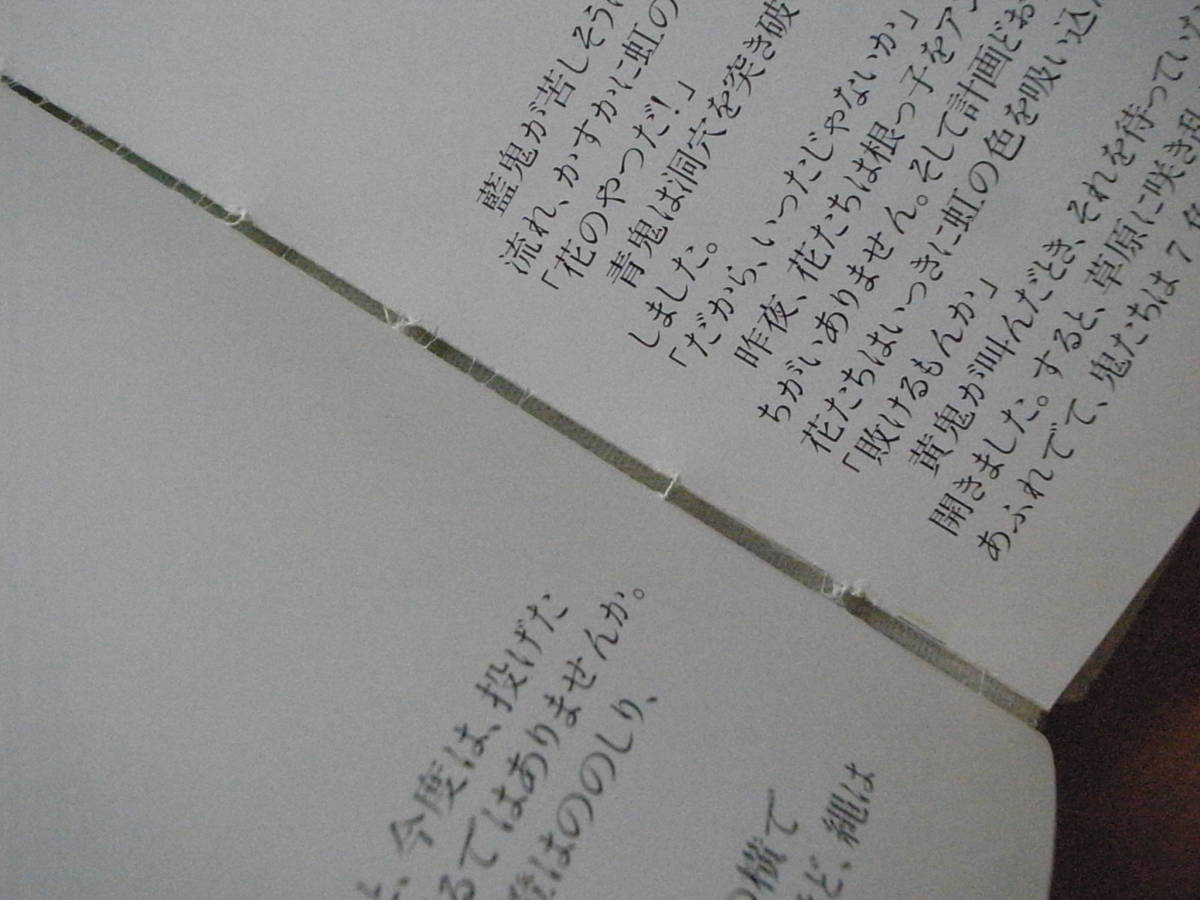 藍鬼が苦しそうに
流れ、かすかに虹の
「花のやつだ!」
青鬼は洞穴を突き破
しました。
「だから、いつたじゃないか」
昨夜、花たちは根っ子をアン
ちがいありません。そして計画どお
花たちはいつきに虹の色を吸い込ん
「敗けるもんか」
黄鬼が叫んだとき、それを待ってい
開きました。すると、草原に咲き乱
あふれでて、鬼たちは7色
と、今度は、投げた
るてはありませんか。
はののしり、
の横て
ほど、縄は